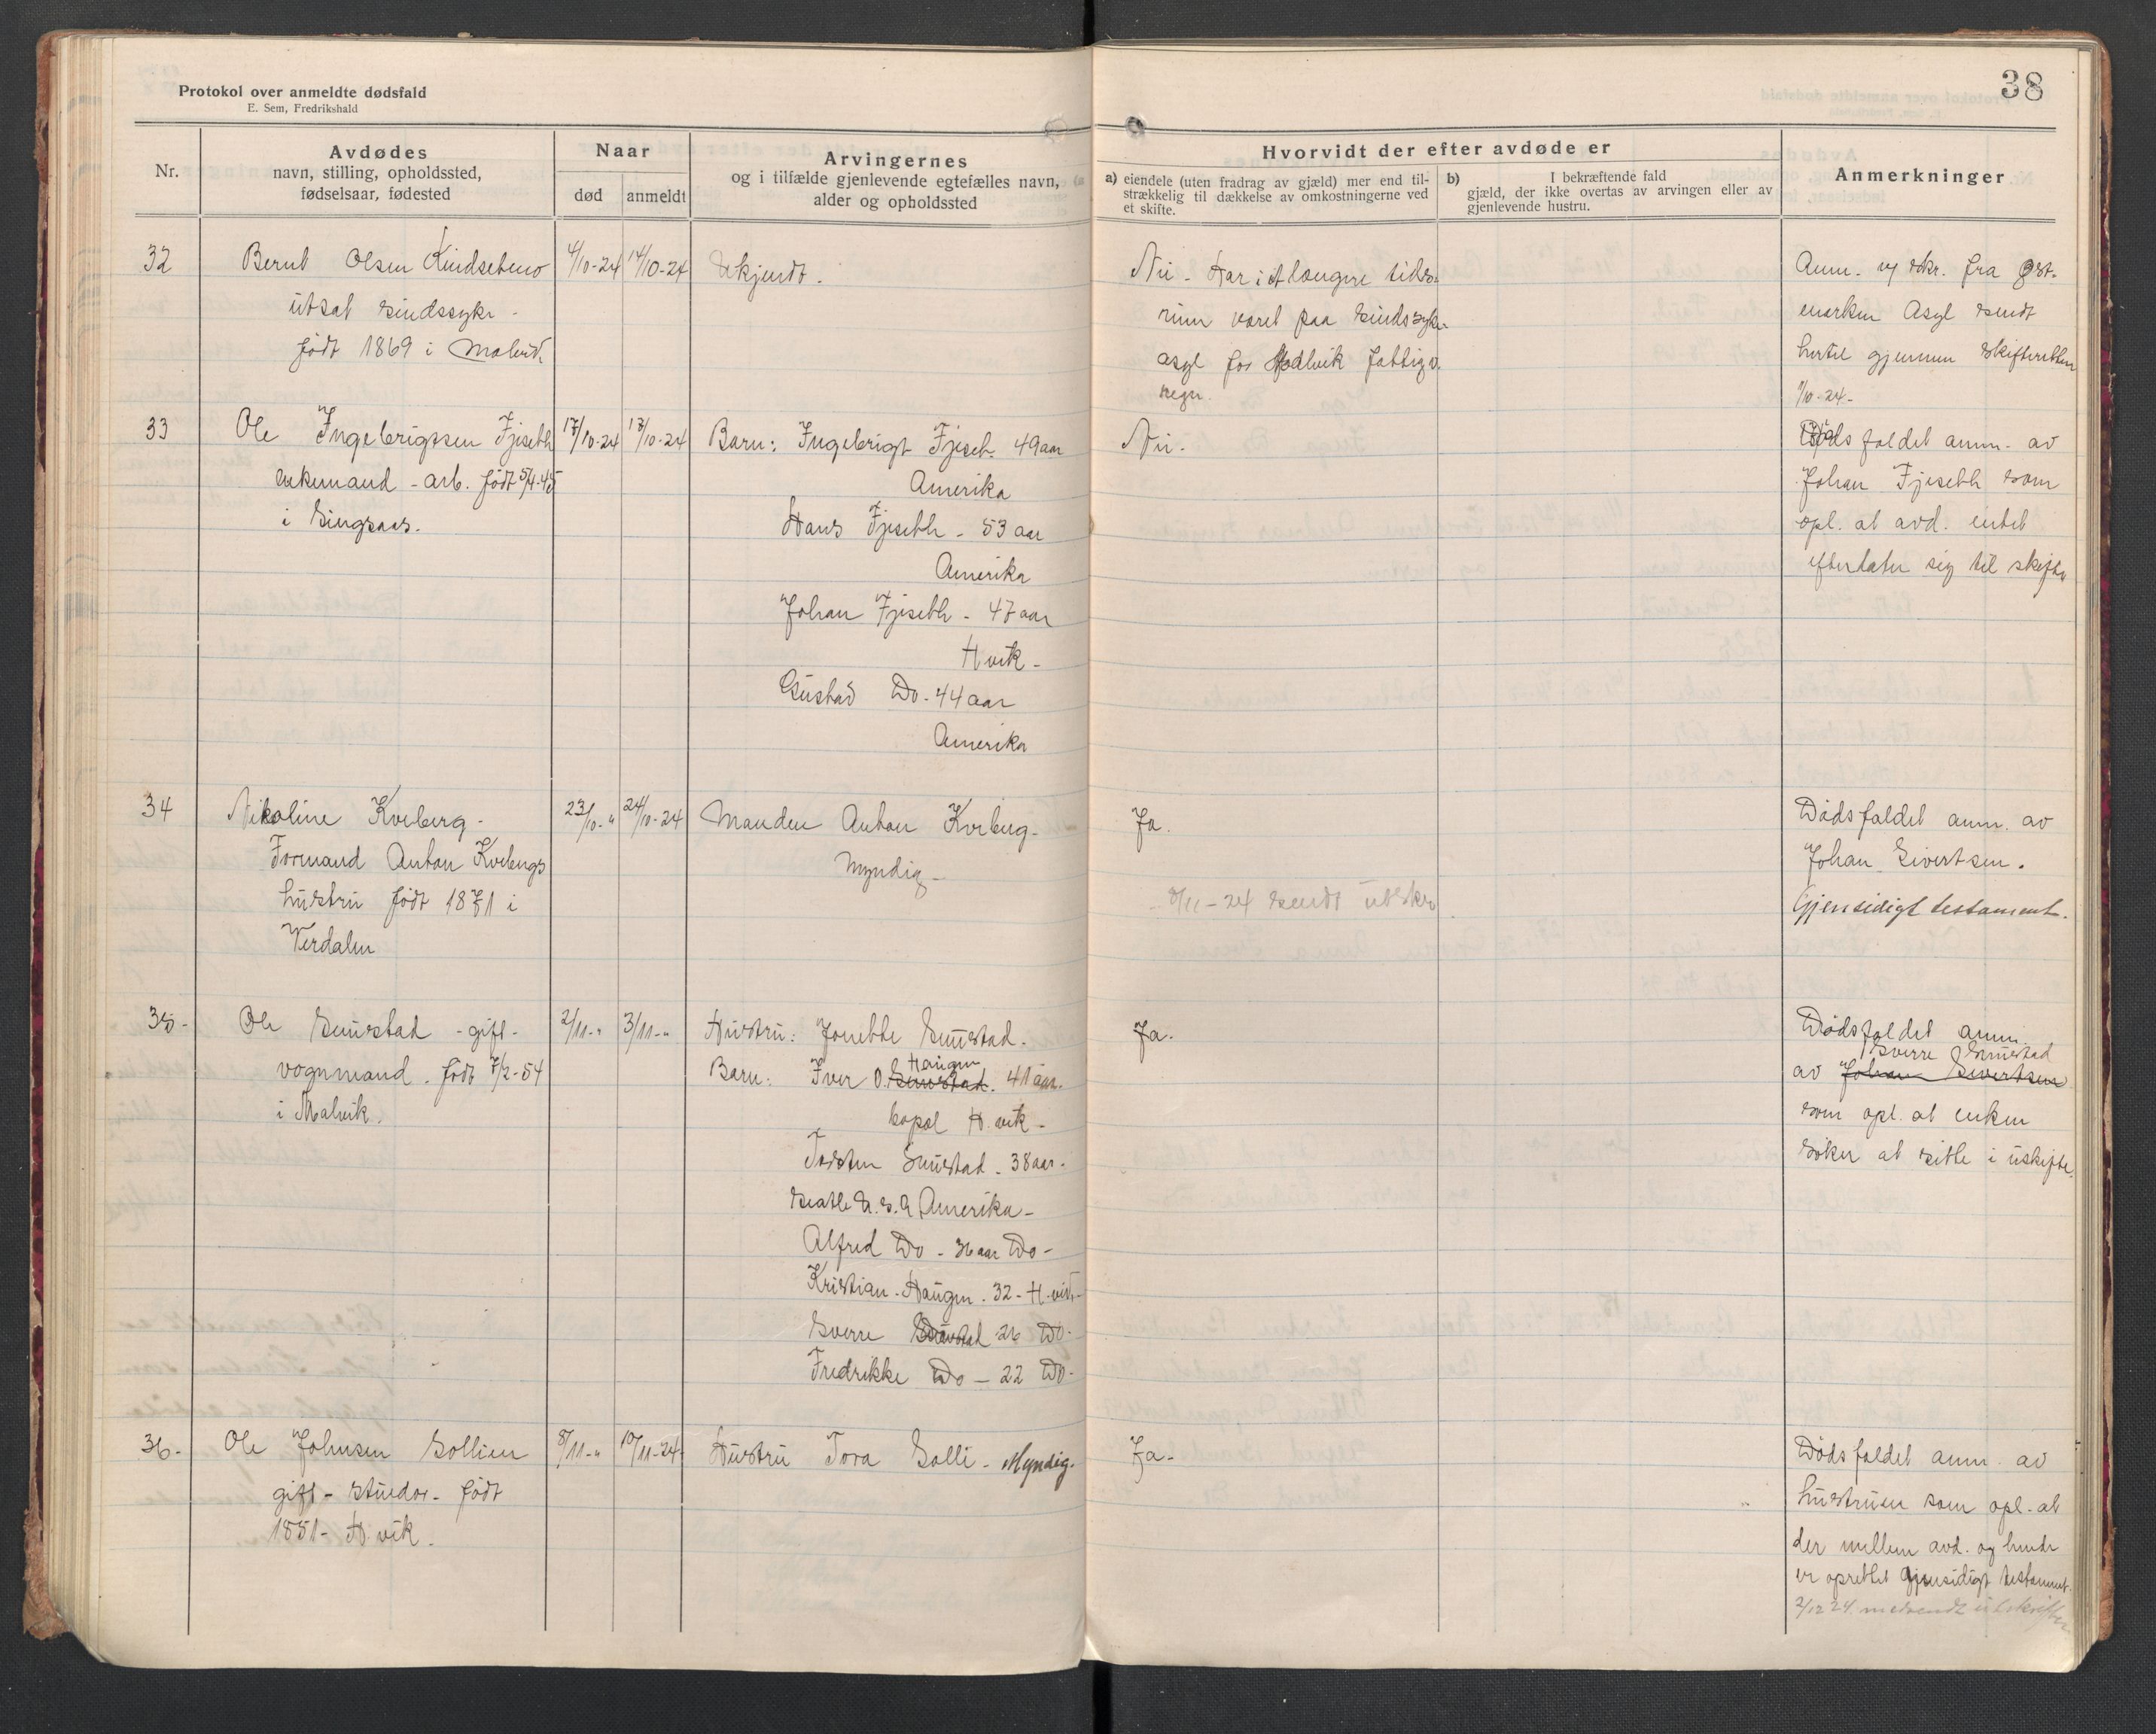 38
Protokol over anmeldte dødsfald
E. Sem, Fredrikshald
Nr.
Avdødes
navn, stilling, opholdssted,
fødselsaar, fødested
Naar
død
anmeldt
Arvingernes
og i tilfælde gjenlevende egtefælles navn,
alder og opholdssted
Hvorvidt der efter avdøde er
a) eiendele (uten fradrag av gjæld) mer end til-
strækkelig til dækkelse av omkostningerne ved
et skifte.
b) I bekræftende fald
gjæld, der ikke overtas av arvingen eller av
gjenlevende hustru.
Anmerkninger
32
Bernt Olsen
utsat sindssyke -
født 1869 i Malvik
4/10-24
14/10-24
Ukjendt.
Nei - Har i et længere tids-
rum været paa sindssyke-
asyl for Malvik fattigv.
regn.
Anm. v/ skr. fra Øst-
marken Asyl sendt
hertil gjennem skifteretten
/10-24-
33
Ole Ingebrigtsen Fjiseth
enkemand - arb. født 5/4-45
i Singsaas.
17/10-24
17/10-24
Barn: Ingebrigt Fjiseth 49 aar
Amerika
Hans Fjiseth - 53 aar
Amerika
Johan Fjiseth - 47 aar
H.vik -
Gustad Do - 44 aar
Amerika
Nei.
Dødsfaldet anm. av
Johan Fjiseth som
opl. at avd. intet
efterlater sig til skifte
34
Nikoline Kveberg -
Formand Anton Kvebergs
hustru født 1871 i
Verdalen
23/10-"
24/10-24
Manden Anton Kveberg -
Myndig -
Ja.
- 8/11-24 sendt utskr
Dødsfaldet anm. av
Johan Sivertsen.
Gjensidigt testament.
35-
Ole Smistad - gift -
vognmand. født 7/2-54
i Malvik.
2/11-"
3/11-"
Hustru: Jonette Smistad.
Haugen
Barn: Iver O. Smistad. 41 aar.
bopæl H.vik -
Torsten Smistad - 38 aar -
Seatle U.S.A. Amerika -
Alfred Do - 36 aar Do -
Kristian - Haugen - 32 - H.vik -
Sverre Smistad 26 Do -
Fredrikke Do - 22 Do -
Ja.
Dødsfaldet anm.
Sverre Smistad
av Johan Sivertsen
som opl. at enken
søker at sitte i uskifte.
36-
Ole Johnsen Sollien
gift - født
1851 - H.vik.
8/11-"
10/11-24
Hustru Tora Solli - Myndig.
Ja -
Dødsfaldet anm. av
hustruen som opl. at
der mellem avd. og hende
er oprettet gjensidigt testament.
2/12 24. utskriften